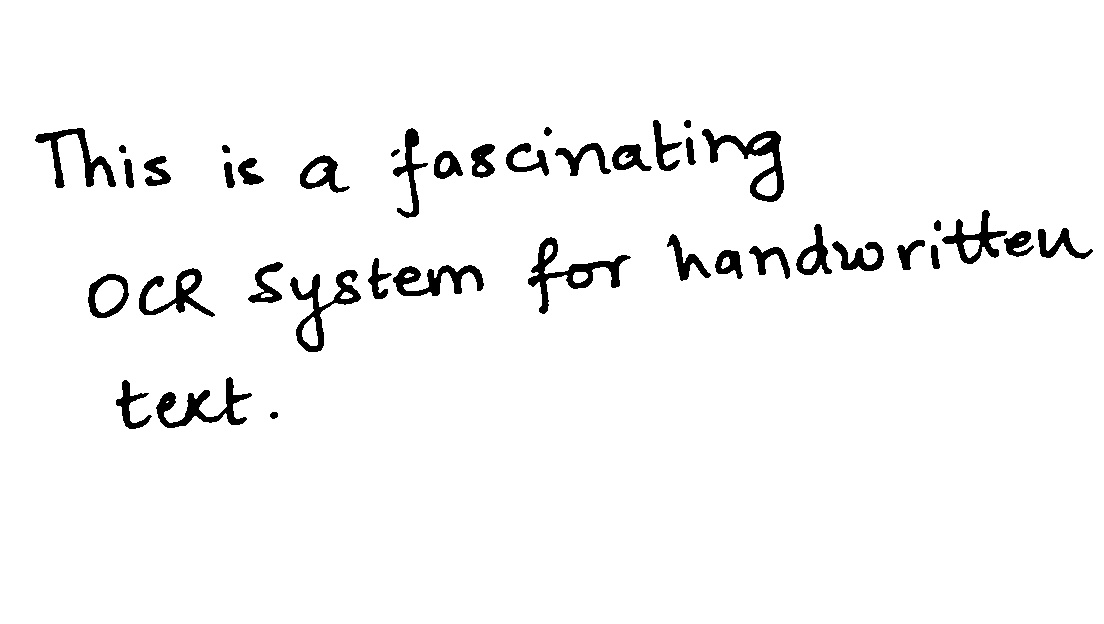 This is a fascinating
OCR system for handwritten
text.